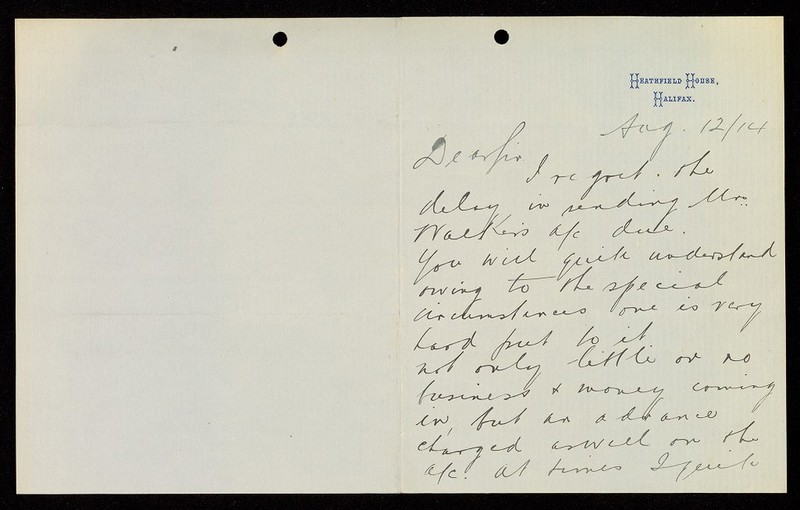 Heathfield House,
Halifax.
Aug. 12/14
Dear Sir
I regret. the
delay in sending Mrs.
Walkers a/c due.
You will quite understand
owing to the special
circumstances one is very
hard put to it
not only little or no
business & money coming
in, but an advance
charged as well on the
a/c. At times I quite